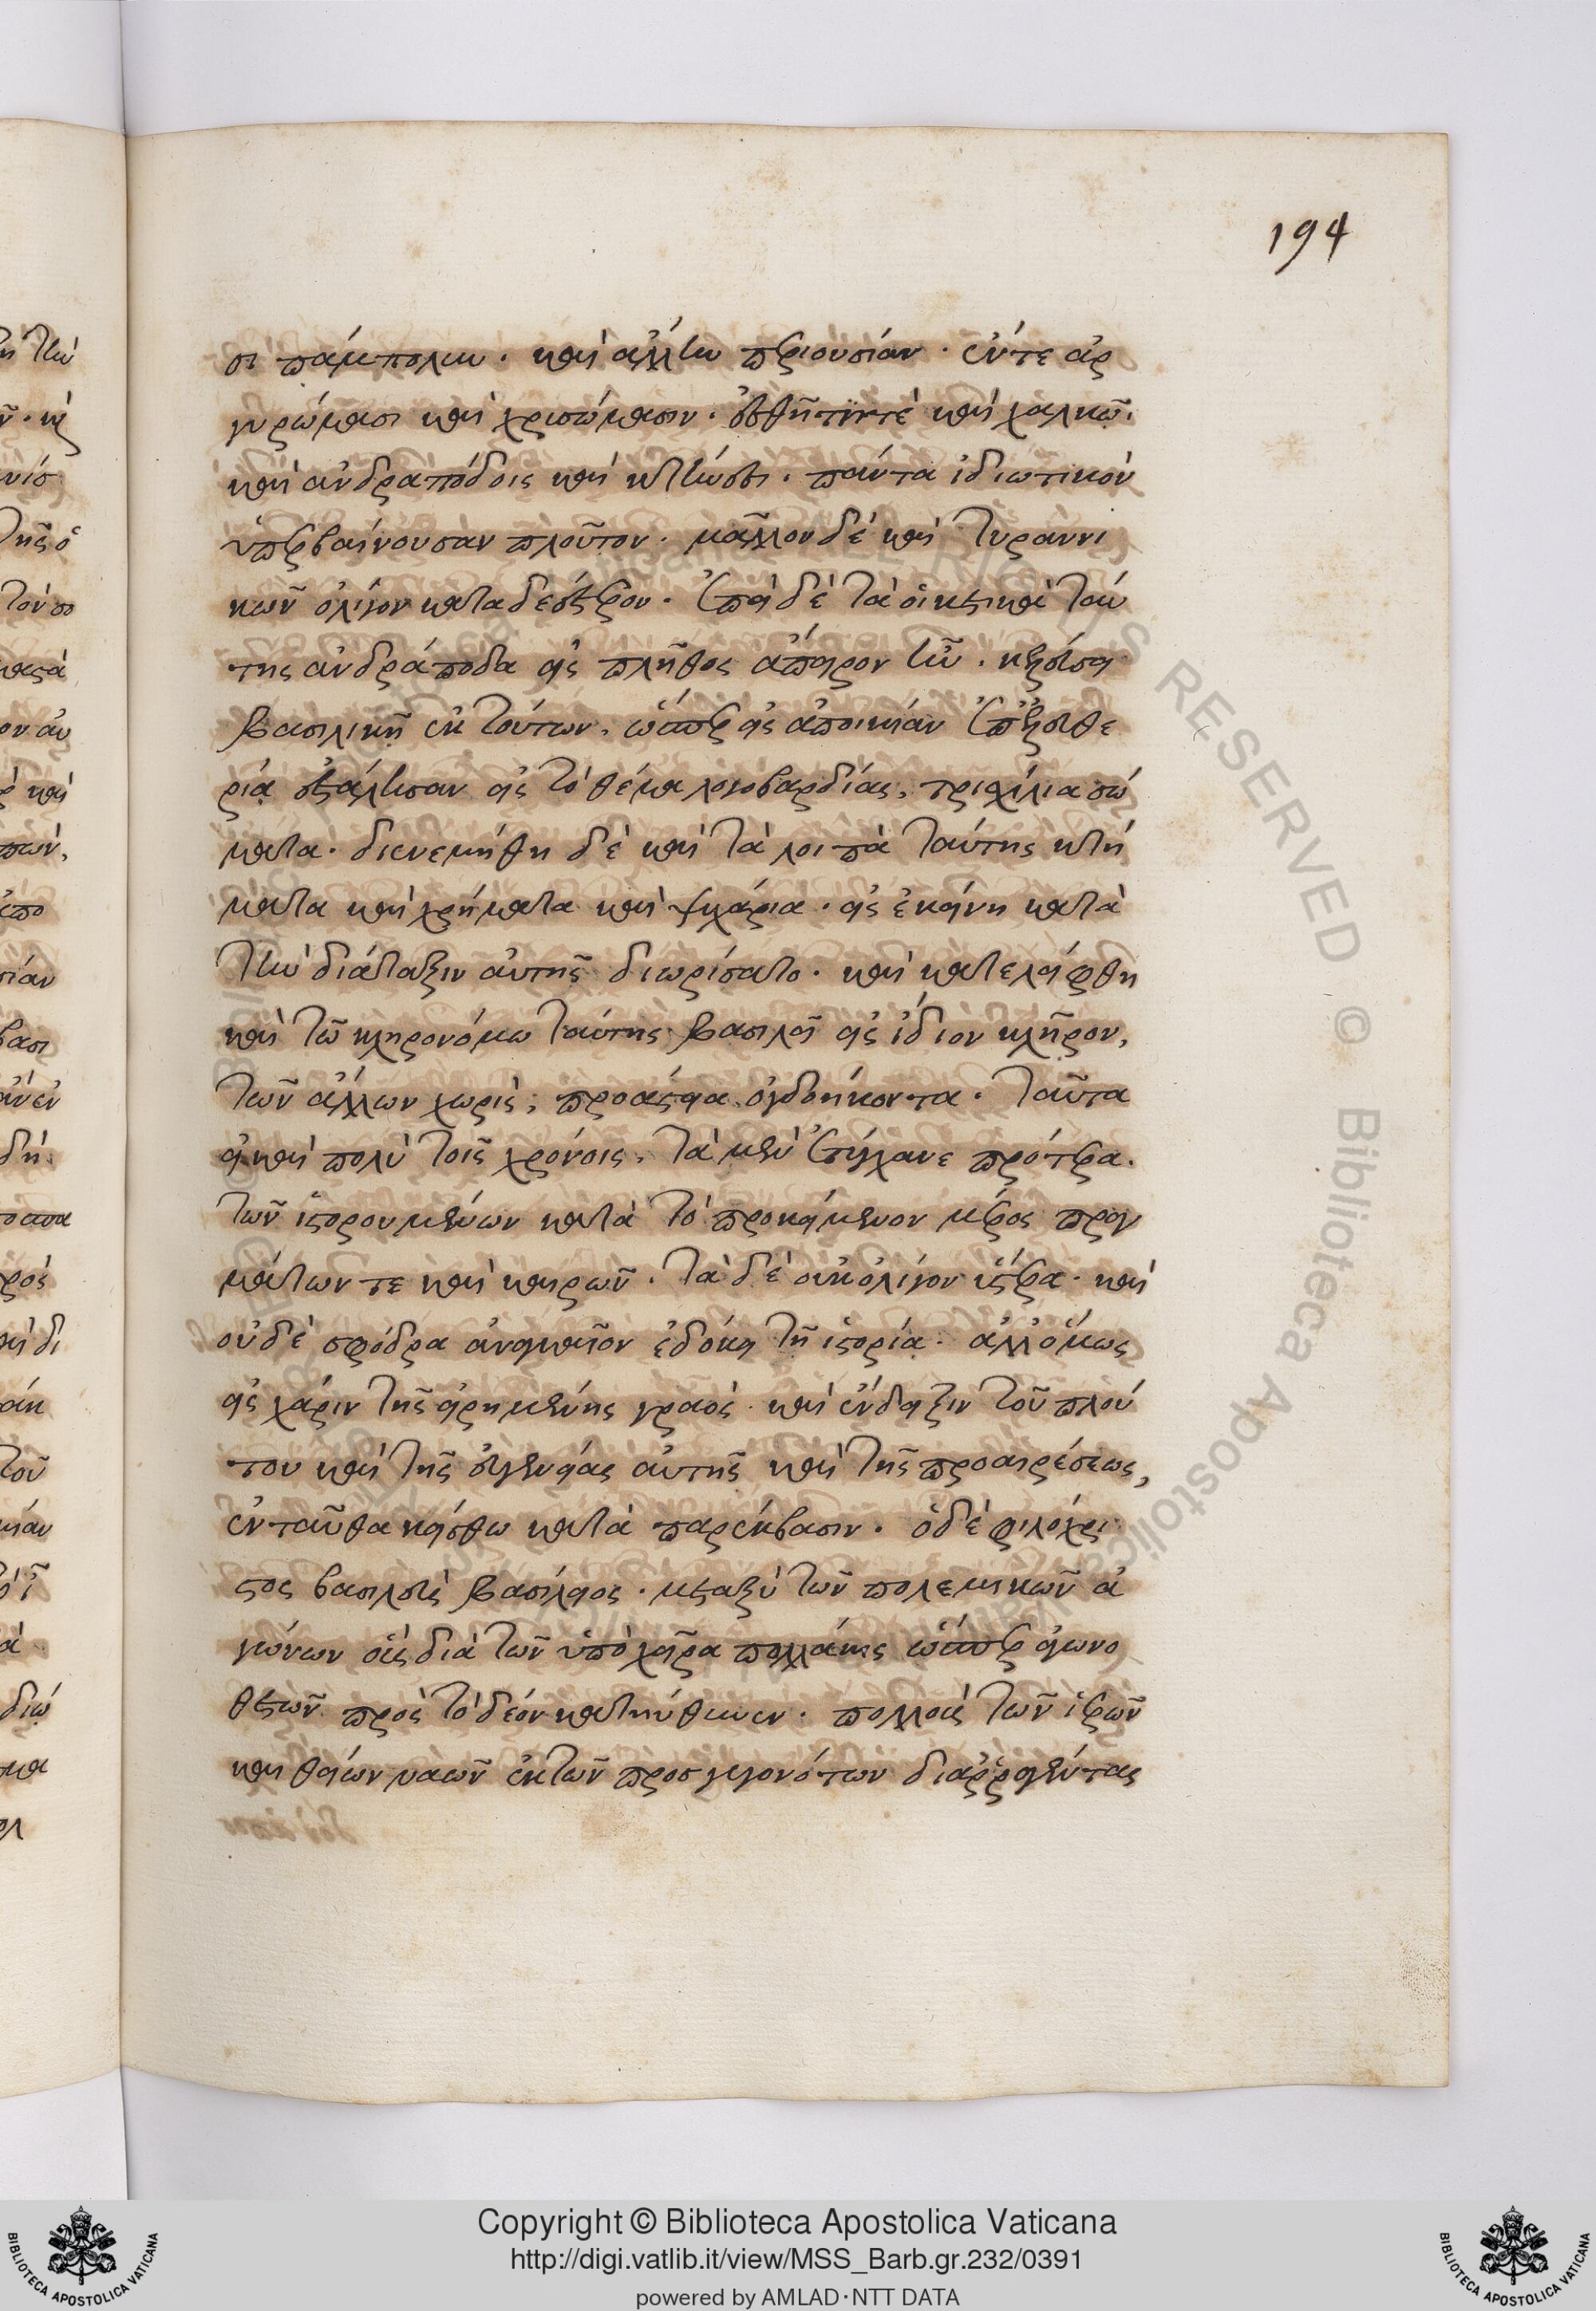 194
σι πάμπολην. καὶ ἄλλην περιουσίαν. ἔν τε ἀρ
γυρώμασι καὶ χρισώμασιν. ἐσθῆτί τε καὶ χαλκῶ.
καὶ ἀνδραπόδοις καὶ κτήνεσι. πάντα ἰδιωτικὸν
ὑπερβαίνουσαν πλοῦτον. μᾶλλον δὲ καὶ τυραννι
κῶν ὀλίγον καταδέστερον. ἐπεὶ δὲ τὰ οἰκετικὰ ταύ
της ἀνδράποδα εἰς πλῆθος ἄπειρον ἦν. κελεύσει
βασιλικῆ ἐκ τούτων, ὥσπερ εἰς ἀποικίαν ἐπ' ἐλευθε
ρία ἐστάλησαν εἰς τὸ θέμα λογοβαρδίας, τρισχίλια σώ
ματα. διενεμήθη δὲ καὶ τὰ λοιπὰ ταύτης κτή
ματα καὶ χρήματα καὶ ψυχάρια. ὡς ἐκείνη κατὰ
τὴν διάταξιν αὐτῆς διωρίσατο. καὶ κατελείφθη
καὶ τῶ κληρονόμω ταύτης βασιλεῖ εἰς ἴδιον κλῆρον,
τῶν ἄλλων χωρὶς, προάστεια ὀγδοήκοντα. ταῦτα
εἰ καὶ πολὺ τοῖς χρόνοις, τὰ μὲν ἐτύγχανε πρότερα.
τῶν ἱστορουμένων κατὰ τὸ προκείμενον μέρος πραγ
μάτων τε καὶ καιρῶν. τὰ δὲ οὐκ ὀλίγον ὕστερα. καὶ
οὐδὲ σφόδρα ἀναγκαῖον ἐδόκει τῆ ἱστορία. ἀλλ' ὅμως
εἰς χάριν τῆς εἰρημένης γραὸς. καὶ ἔνδειξιν τοῦ πλού
του καὶ τῆς εὐγενείας αὐτῆς καὶ τῆς προαιρέσεως,
ἐνταῦθα κείσθω κατὰ παρέκβασιν. ὁ δὲ φιλόχρι
στος βασιλεὺς βασίλειος. μεταξὺ τῶν πολεμικῶν ἀ
γώνων οὓς διὰ τῶν ὑπὸ χεῖρα πολλάκις ὥσπερ ἀγωνο
θετῶν πρὸς τὸ δέον κατηύθυνεν. πολλοὺς τῶν ἱερῶν
καὶ θείων ναῶν ἐκ τῶν προσγεγονότων διαρραγέντας
Copyright © Biblioteca Apostolica Vaticana
http://digi.vatlib.it/view/MSS_Barb.gr.232/0391
powered by AMLAD·NTT DATA